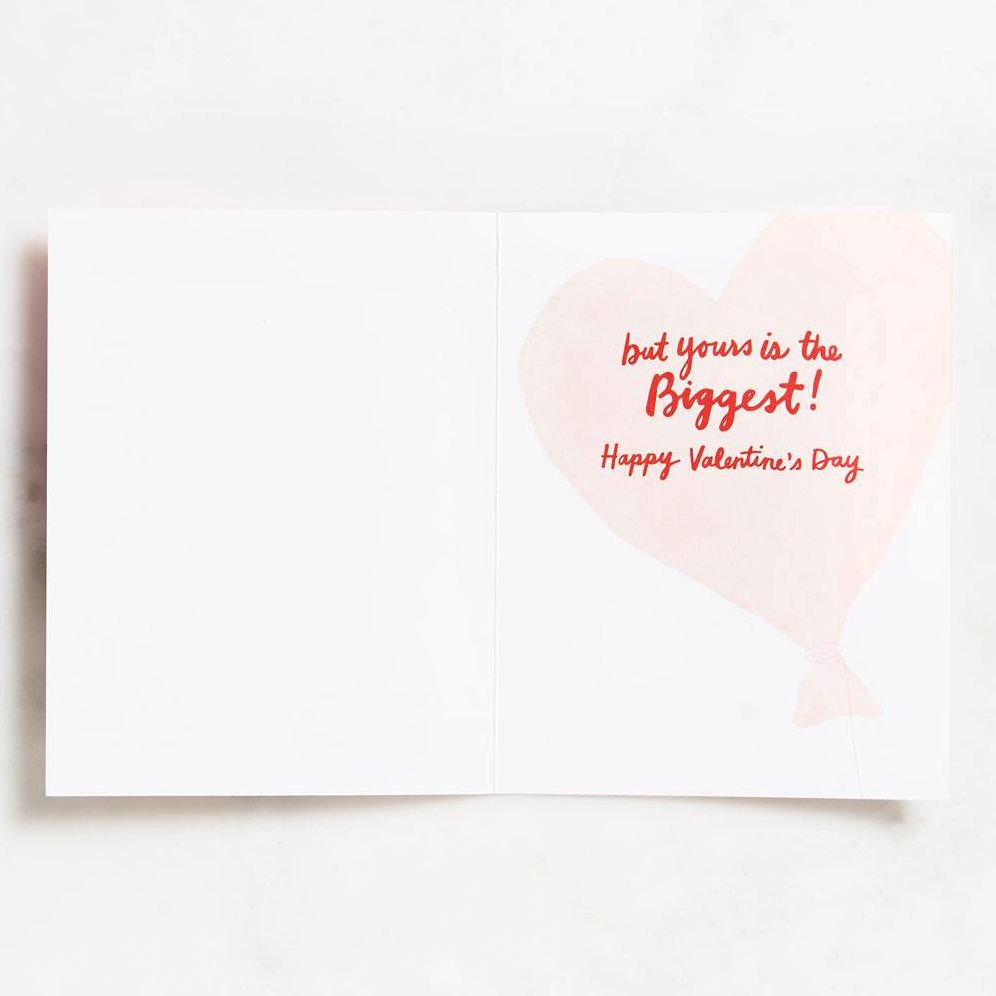 but yours is the
Biggest!
Happy Valentine's Day